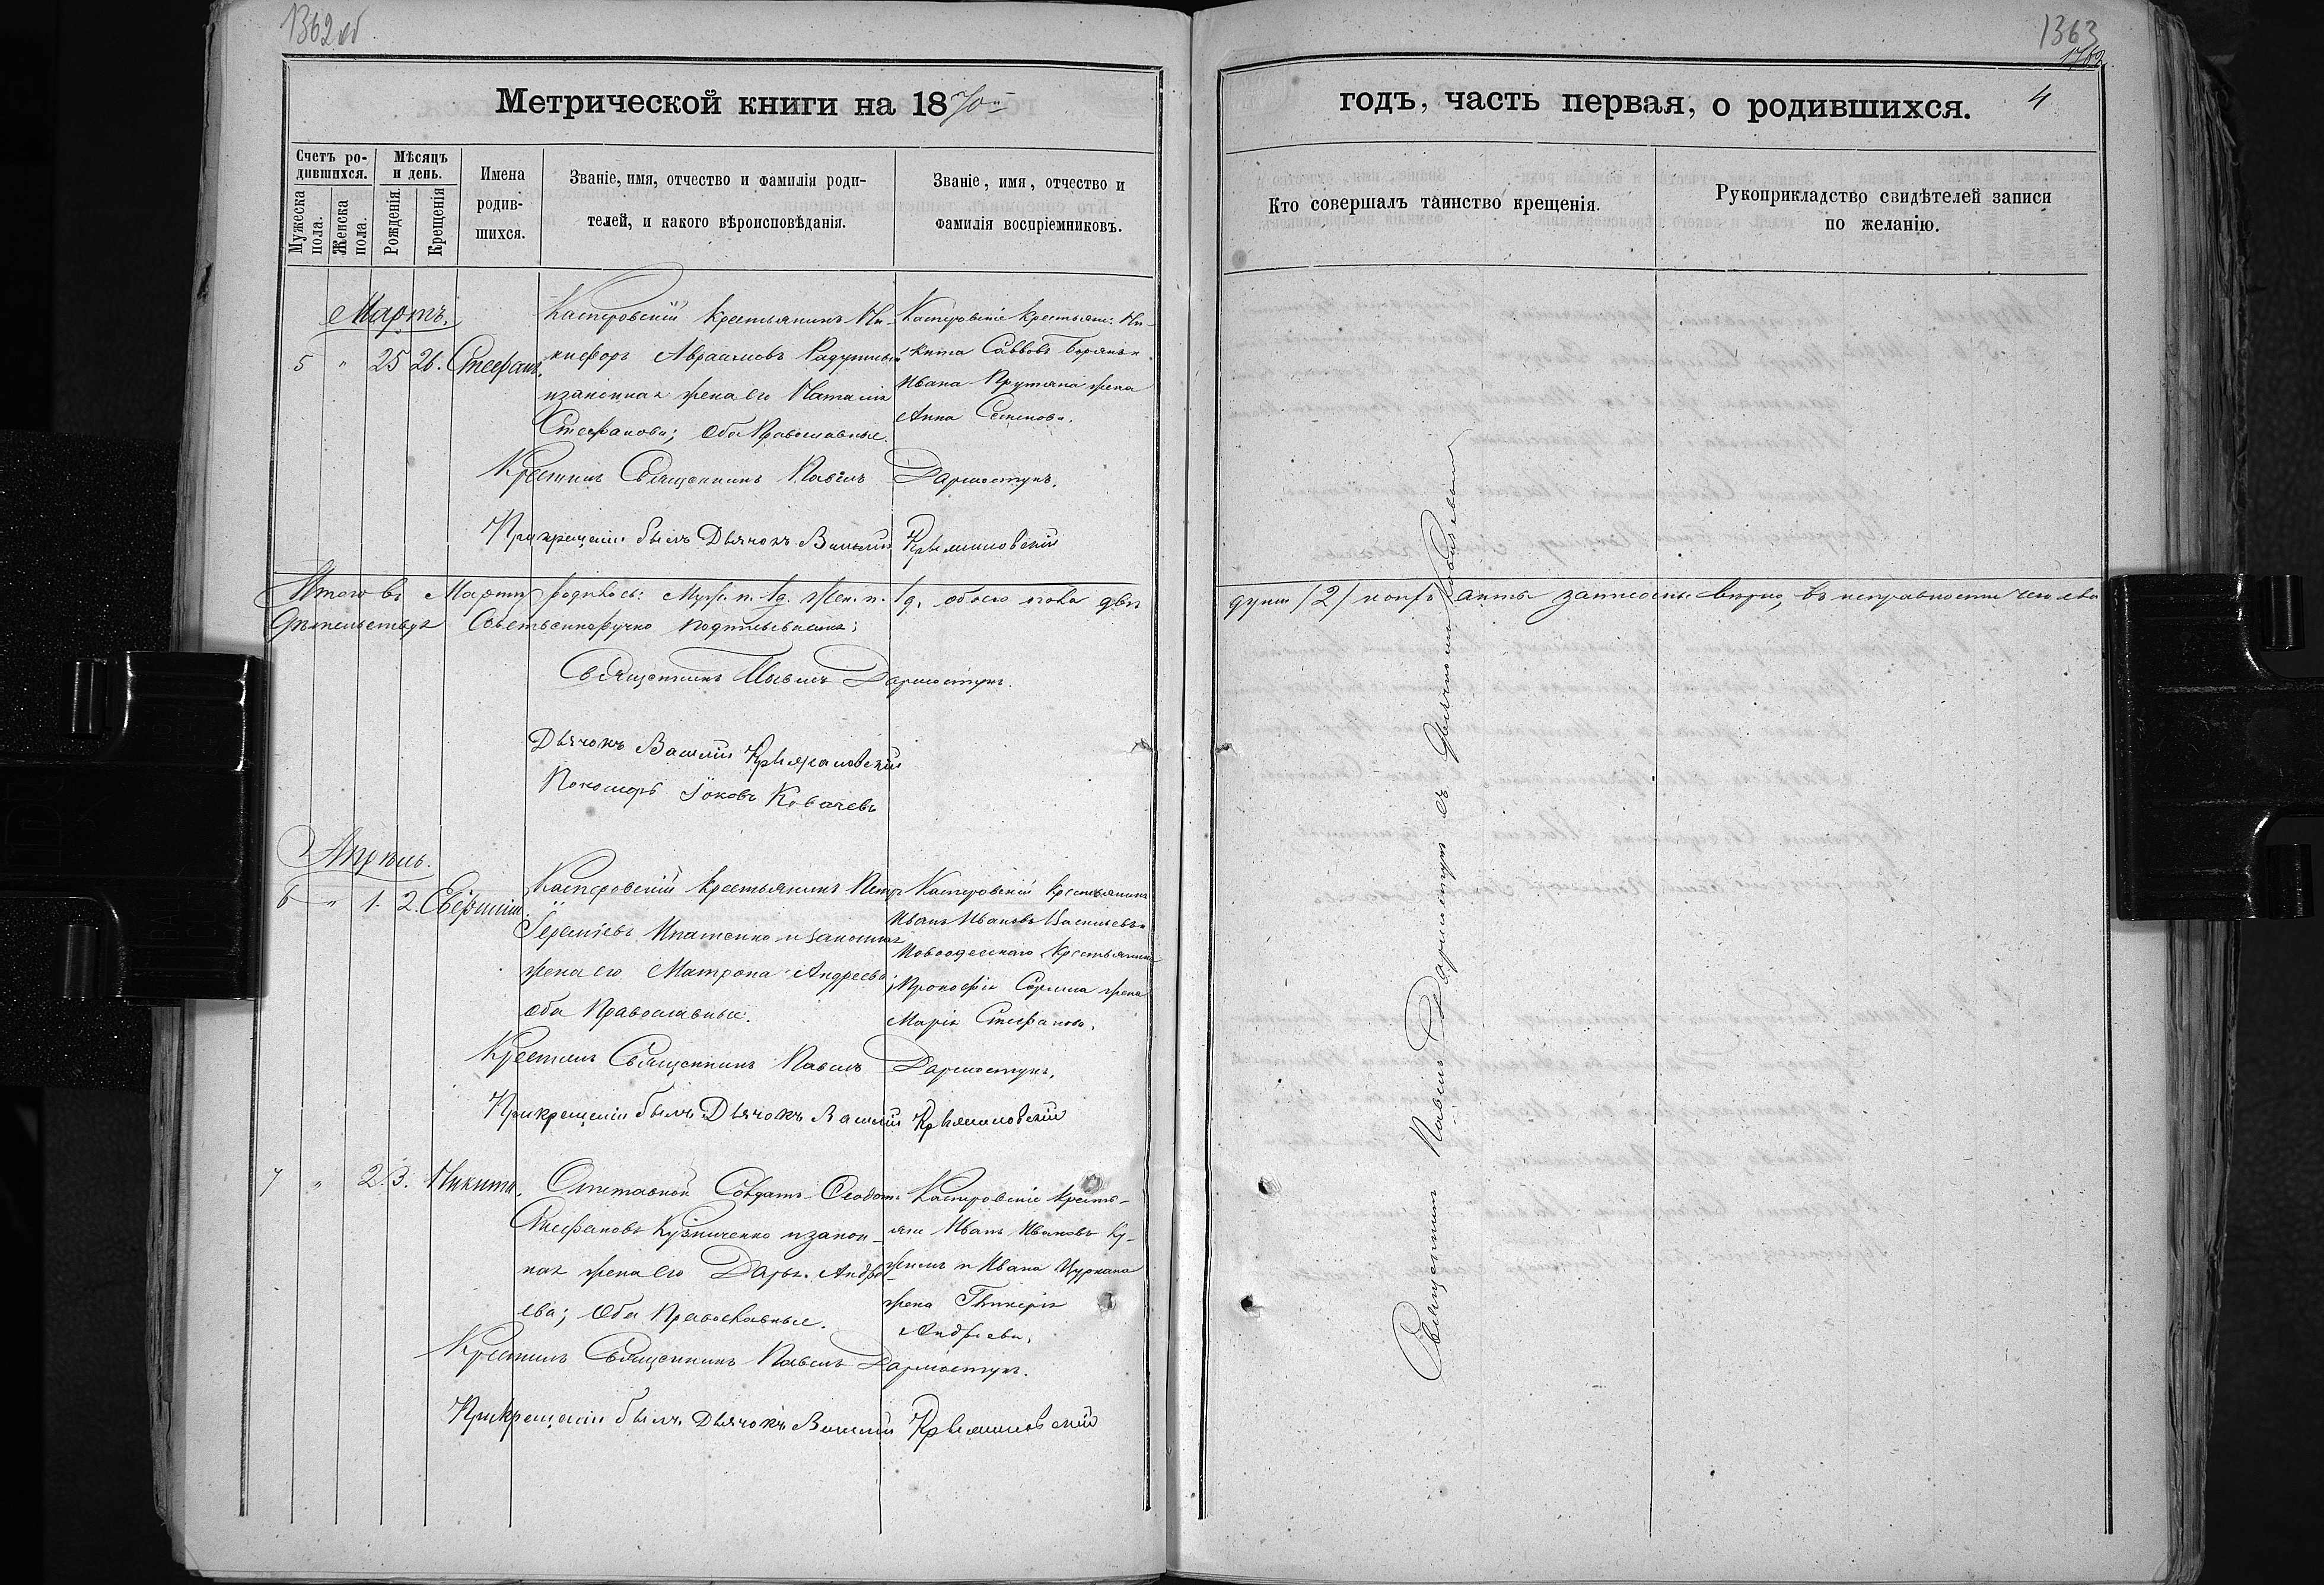 1362 об
1363
1762
Метрической книги на 1870й
годъ, часть первая, о родившихся. 4
Счетъ родившихся.
Мужеска пола.
Женска пола.
Мѣсяцъ и день.
Рожденія
Крещенія
Имена родившихся.
Званіе, имя, отчество и фамилія родителей, и какого вѣроисповѣданія.
Званіе, имя, отчество и фамилія воспріемниковъ.
Кто совершалъ таинство крещенія.
Рукоприкладство свидѣтелей записи по желанію.
Мартъ.
5 " 25 26. Стефанъ.
Касперовскій крестьянинъ Ни-
кифоръ Авраамовъ
и законная жена его Наталія
Стефанова; оба Православные.
Касперовскіе крестьяне: Ни-
кита Саввовъ и
Ивана жена
Анна Семенова.
Крестилъ Священникъ Павелъ Дармостукъ.
При крещеніи былъ Дьячокъ Василій Крыжановскій
Итого въ Мартѣ родилось: Муж. п. 1д. Жен. п. 1д. обоего пола двѣ
души /2/ акты записаны вѣрно, въ исправности чего сви
дѣтельствуя собственоручно подписываемъ:
Священникъ Павелъ Дармостукъ.
Дьячокъ Василій Крыжановскій
Пономарь Іаковъ Ковачевъ
Апрѣль.
6 " 1. 2.
Касперовскій крестьянинъ Петръ
Іереміевъ Игнатенко и законная
жена его Матрона Андреева;
оба Православные.
Касперовскій крестьянинъ
Иванъ Ивановъ Васильевъ и
Новоодесскаго крестьянина
Прокофія жена
Марія Стефанова.
Крестилъ Священникъ Павелъ Дармостукъ.
При крещеніи былъ Дьячокъ Василій Крыжановскій
7 " 2. 3. Никита.
Отставной Солдатъ Феодотъ
Стефановъ Кузниченко и закон-
ная жена его Дарья Андре-
ева; оба Православные.
Касперовскіе кресть-
яне Иванъ Ивановъ
и Ивана Цуркана
жена Гликерія
Андреева.
Крестилъ Священникъ Павелъ Дармостукъ.
При крещеніи былъ Дьячокъ Василій Крыжановскій
Священникъ Павелъ Дармостукъ съ Дьячкомъ